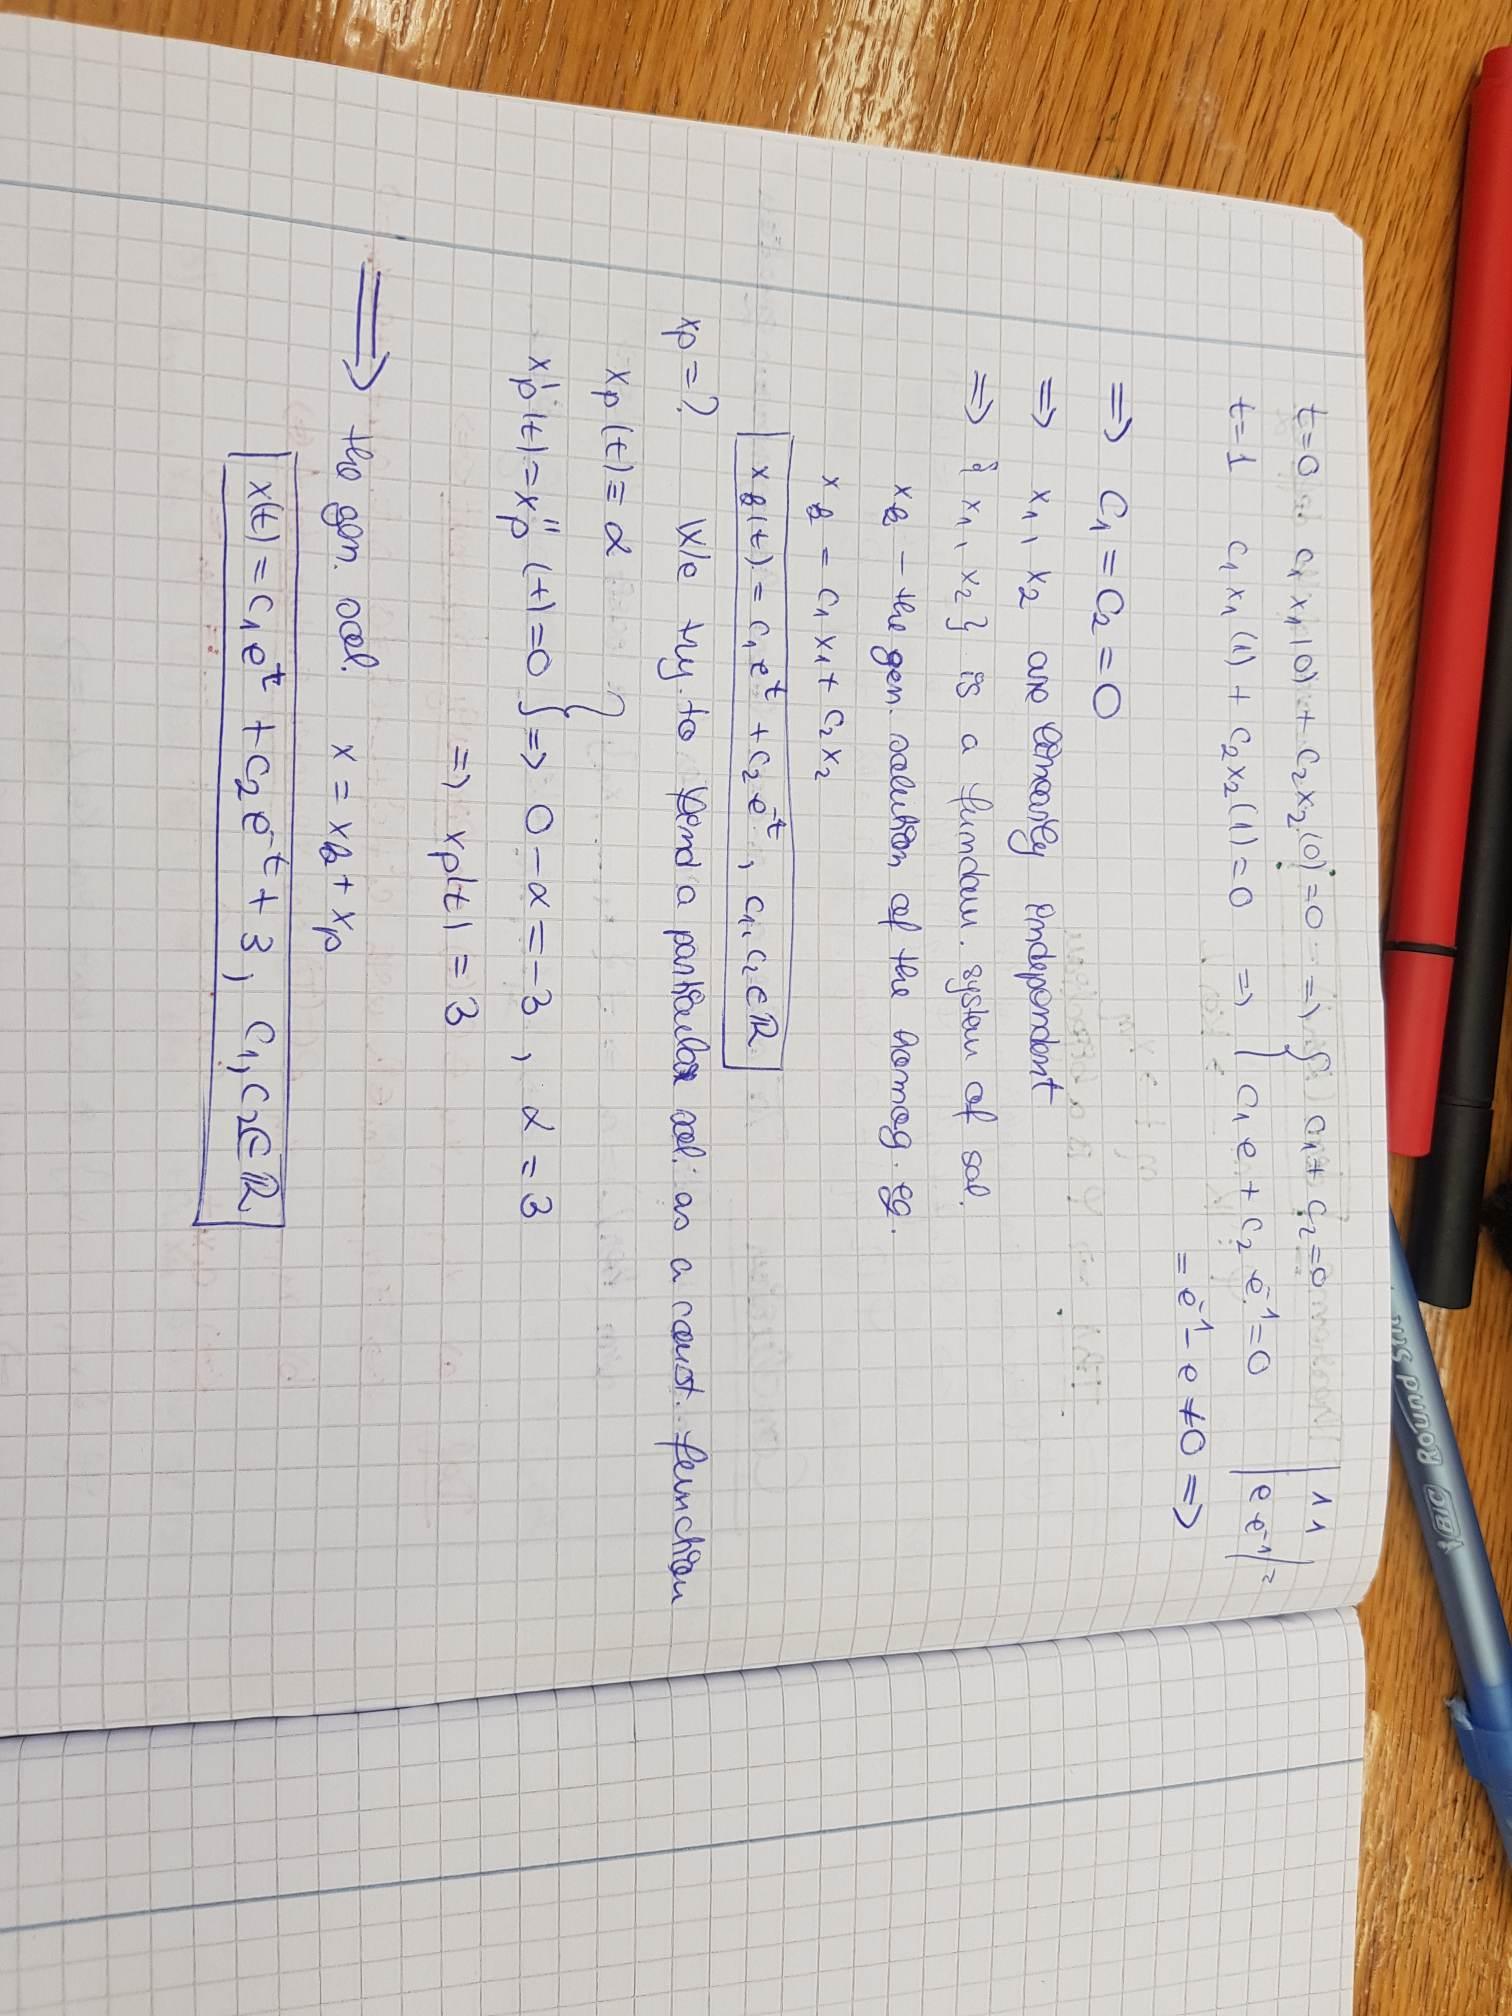 BIC Round Stic
t=0 c₁x₁(0) + c₂x₂(0)=0 => { c₁ + c₂=0 | 1 1 |
t=1 c₁x₁(1) + c₂x₂(1)=0 => { c₁e + c₂e⁻¹=0 | e e⁻¹ | =
= e⁻¹ - e ≠ 0 =>
=> c₁ = c₂ = 0
=> x₁, x₂ are linearly independent
=> {x₁, x₂} is a fundam. system of sol.
xₕ – the gen. solution of the homog. eq.
xₕ = c₁x₁ + c₂x₂
xₕ(t) = c₁eᵗ + c₂e⁻ᵗ, c₁, c₂ ∈ ℝ
xp = ? We try to find a particular sol. as a const. function
xp(t) ≡ α
xp'(t) = xp''(t) = 0 } => 0 - α = -3, α = 3
=> xp(t) = 3
=> the gen. sol. x = xₕ + xp
x(t) = c₁eᵗ + c₂e⁻ᵗ + 3, c₁, c₂ ∈ ℝ